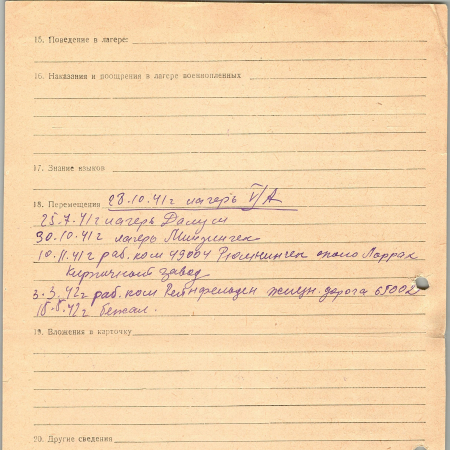 15. Поведение в лагере:
16. Наказания и поощрения в лагере военнопленных
17. Знание языков
18. Перемещения 28.10.41г лагерь V/A
25.7.41г лагерь Далум
30.10.41г лагерь Минзинген
10.11.41г раб. ком 49004 около Лоррах
Кирпичный завод
3.3.42г раб. ком Рейнфельден железн. дорога 65002
18.8.42г бежал.
19. Вложения в карточку
20. Другие сведения